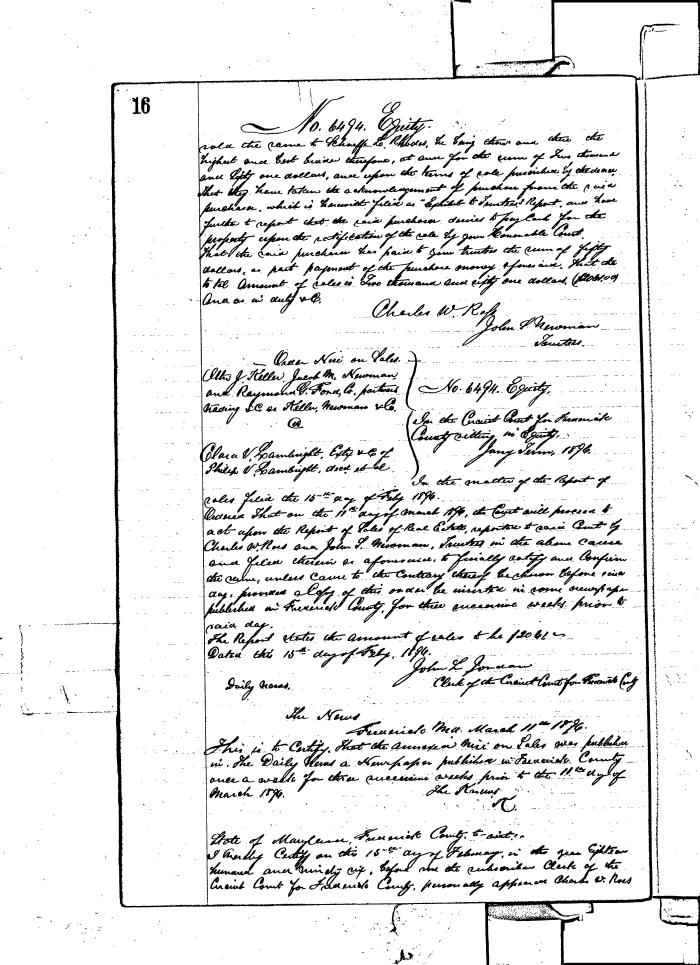 16
No. 6494. Equity.
sold the same to Schaeffe C. Rhodes, he being then and there the
highest and best bidder therefore, at and for the sum of Two thousand
and Fifty one dollars, and upon the terms of sale prescribed by the decree
That they have taken the acknowledgement of purchase from the said
purchaser, which is herewith filed as Exhibit to Trustees Report, and have
further to report that the said purchaser desires to pay Cash for the
property upon the ratification of the sale by your Honorable Court.
That the said purchaser has paid to your trustees the sum of fifty
dollars, as part payment of the purchase money aforesaid. That the
total Amount of sales is Two thousand and sixty one dollars,
And as in duty &C.
Charles W. Ross
John S Newman
Trustees.
Order Nisi on Sales.
Otho J. Keller, Jacob M. Newman
and Raymond G. Ford, Co. partners
trading &C as Keller, Newman & Co.
Clara V. Lambright, Extx &C of
Philip V. Lambright, decd et al
No. 6494. Equity.
In the Circuit Court for Frederick
County sitting in Equity.
Jany Term, 1896.
In the matter of the Report of
sales filed the 15th day of Feby 1896.
Ordered That on the 11th day of March 1896, the Court will proceed to
act upon the Report of Sales of Real Estate, reported to said Court by
Charles W. Ross and John S. Newman, Trustees in the above cause
and filed therein as aforesaid, to finally ratify and Confirm
the same, unless cause to the Contrary thereof be shown before said
day, provided a Copy of this order be inserted in some newspaper
published in Frederick County, for three successive weeks prior to
said day.
The Report states the amount of sales to be $2061
Dated this 15th day of Feby, 1896.
John L Jordan
Clerk of the Circuit Court for Frederick Cnty
Daily News.
The News
Frederick Md. March 11th 1896.
This is to Certify, That the annexed Nisi on Sales was published
in. The Daily News a Newspaper published in Frederick County
once a week for three successive weeks prior to the 11th day of
March 1896.
The News
State of Maryland, Frederick County, to-wit:
I hereby Certify on this 15th day of February, in the year Eighteen
hundred and ninety six, before me the subscriber Clerk of the
Circuit Court for Frederick County, personally appeared Charles W. Ross